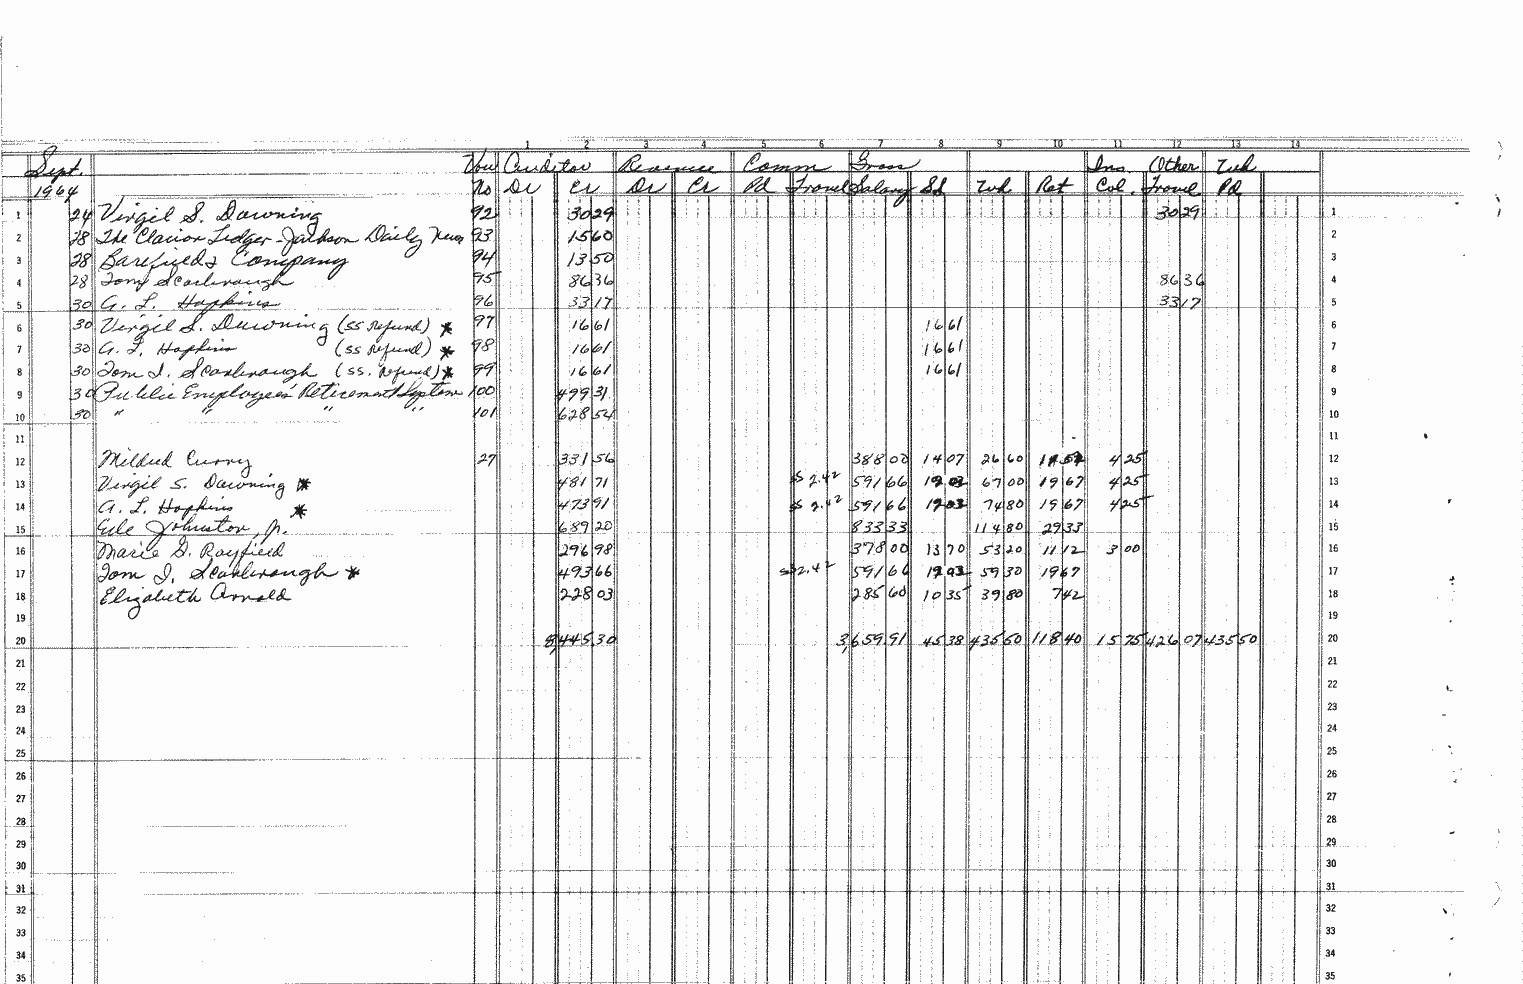 1 2 3 4 5 6 7 8 9 10 11 12 13 14
Sept. Vou Auditor Revenue Comm Gross Ins. Other Wh
1964 No Dr Cr Dr Cr Pd Travel Salary SS Wh Ret Col. Travel Pd
1 24 Virgil S. Downing 92 30 29 30 29 1
2 28 The Clarion Ledger - Jackson Daily News 93 15 60 2
3 28 Barefield & Company 94 13 50 3
4 28 Tom Scarbrough 95 86 36 86 36 4
5 30 A. L. Hopkins 96 33 17 33 17 5
6 30 Virgil S. Downing (SS Refund) * 97 16 61 16 61 6
7 30 A. L. Hopkins (SS Refund) * 98 16 61 16 61 7
8 30 Tom J. Scarbrough (SS. Refund) * 99 16 61 16 61 8
9 30 Public Employees' Retirement System 100 499 31 9
10 30 " " " " 101 628 54 10
11 11
12 Mildred Curry 27 331 56 388 00 14 07 26 60 4 25 12
13 Virgil S. Downing * 481 71 $ 2.42 591 66 67 00 19 67 4 25 13
14 A. L. Hopkins * 473 91 $ 2.42 591 66 74 80 19 67 4 25 14
15 Erle Johnston, Jr. 689 20 833 33 114 80 29 33 15
16 Marie G. Rayfield 296 98 378 00 13 70 53 20 11 12 3 00 16
17 Tom J. Scarbrough * 493 66 $2.42 591 66 59 30 19 67 17
18 Elizabeth Arnold 228 03 285 60 10 35 39 80 7 42 18
19 19
20 8,445.30 3,659.91 45 38 435 50 118 40 15 75 426 07 435 50 20
21 21
22 22
23 23
24 24
25 25
26 26
27 27
28 28
29 29
30 30
31 31
32 32
33 33
34 34
35 35